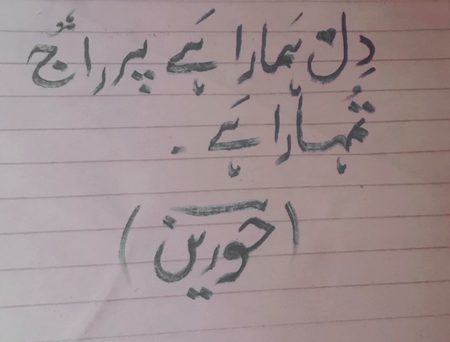 دِل ہَمارا ہَے پر راج
تُمہارا ہَے۔
(حورین)